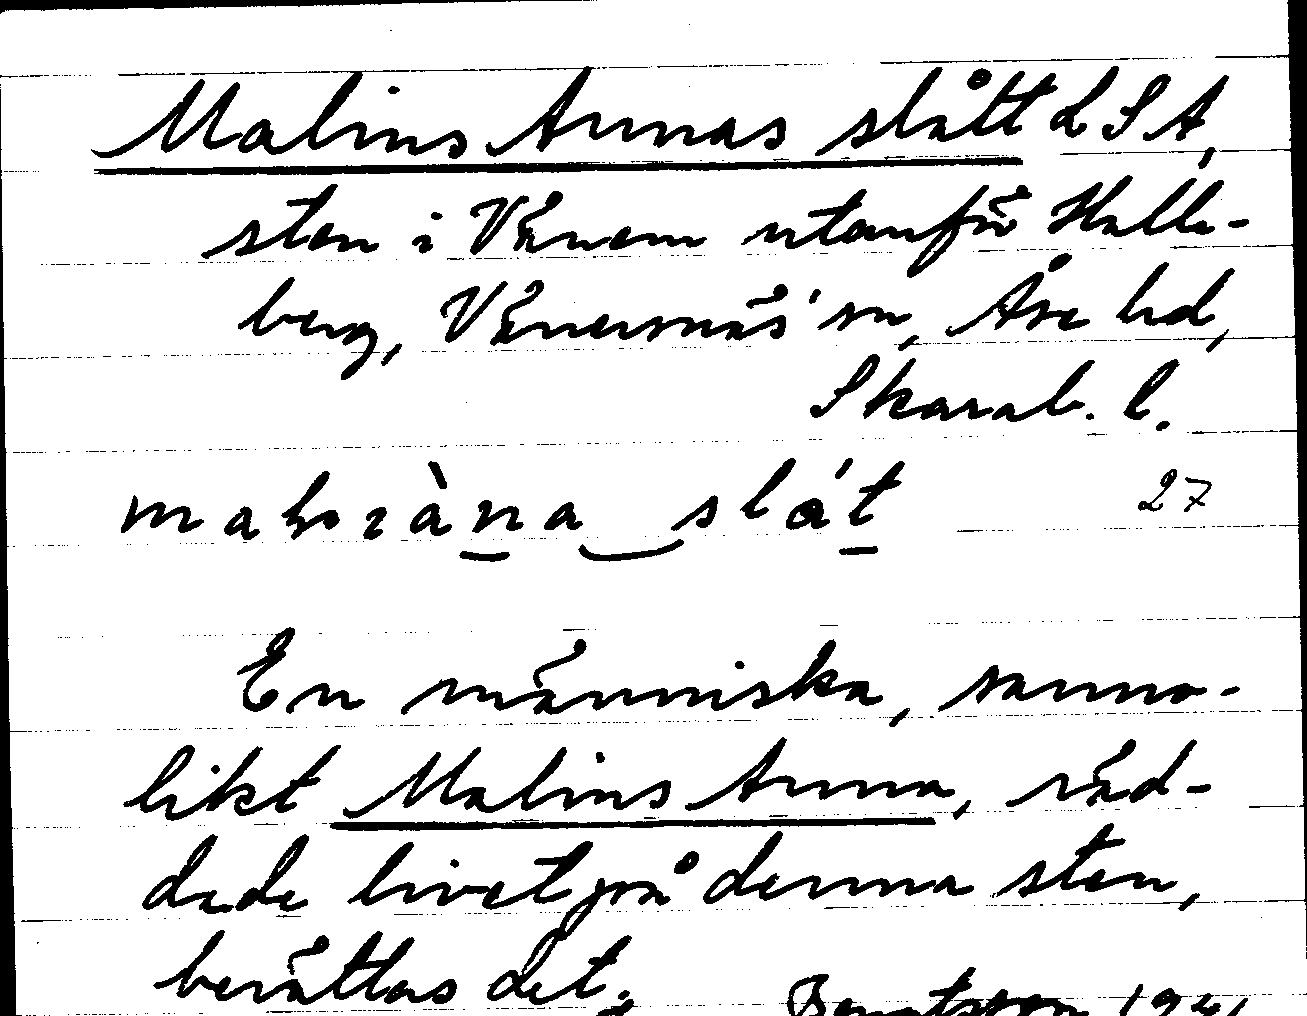 Malins Annas slått L S A,
sten i Vänern utanför Halle-
berg, Vänersnäs' sn, Åse hd,
Skarab. l.
27
En människa, sanno-
likt Malins Anna, räd-
dade livet på denna sten,
berättas det.
Bengtsson 1941